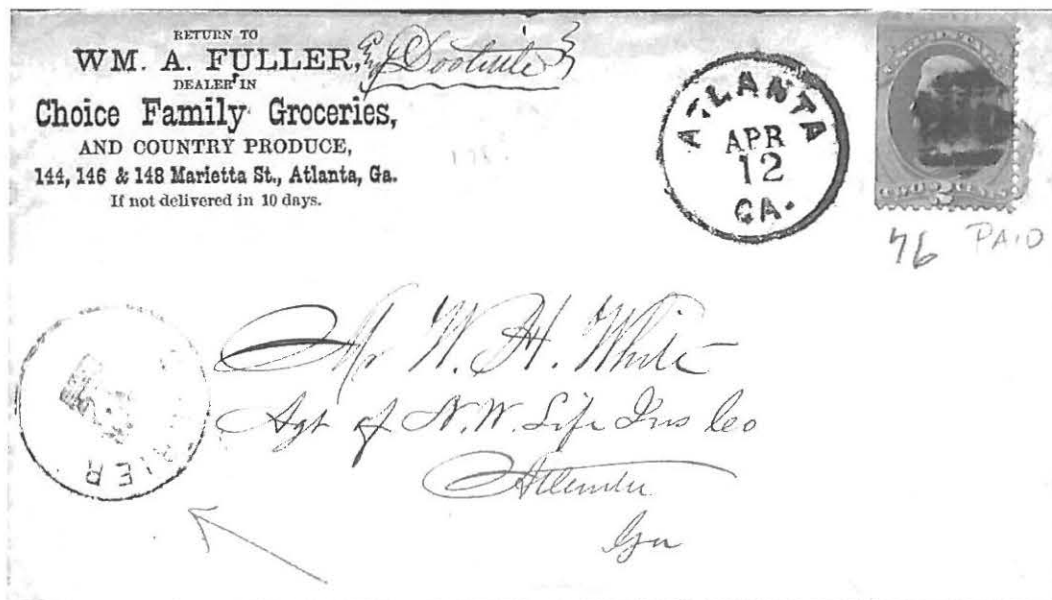 RETURN TO
WM. A. FULLER,
DEALER IN
Choice Family Groceries,
AND COUNTRY PRODUCE,
144, 146 & 148 Marietta St., Atlanta, Ga.
If not delivered in 10 days.
Doolittle
ATLANTA
APR
12
GA.
TWO CENTS
76 PAID
Mr W. H. White
Agt of N.W. Life Ins Co
Atlanta
Ga